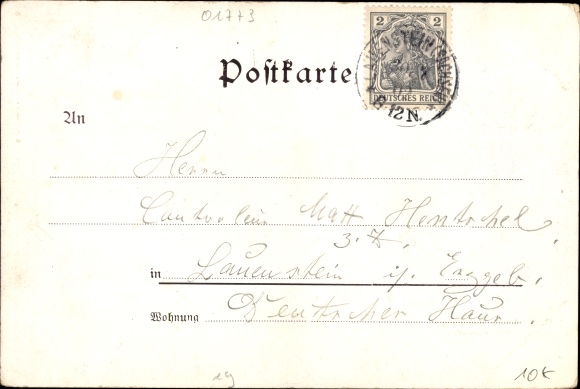 01773
2 2
DEUTSCHES REICH
LAUENSTEIN
12N.
Postkarte
An
Herrn
Controleur Matt Hentschel,
z. Z.
in Lauenstein i. Erzgeb.
Wohnung Deutscher Haus.
10€